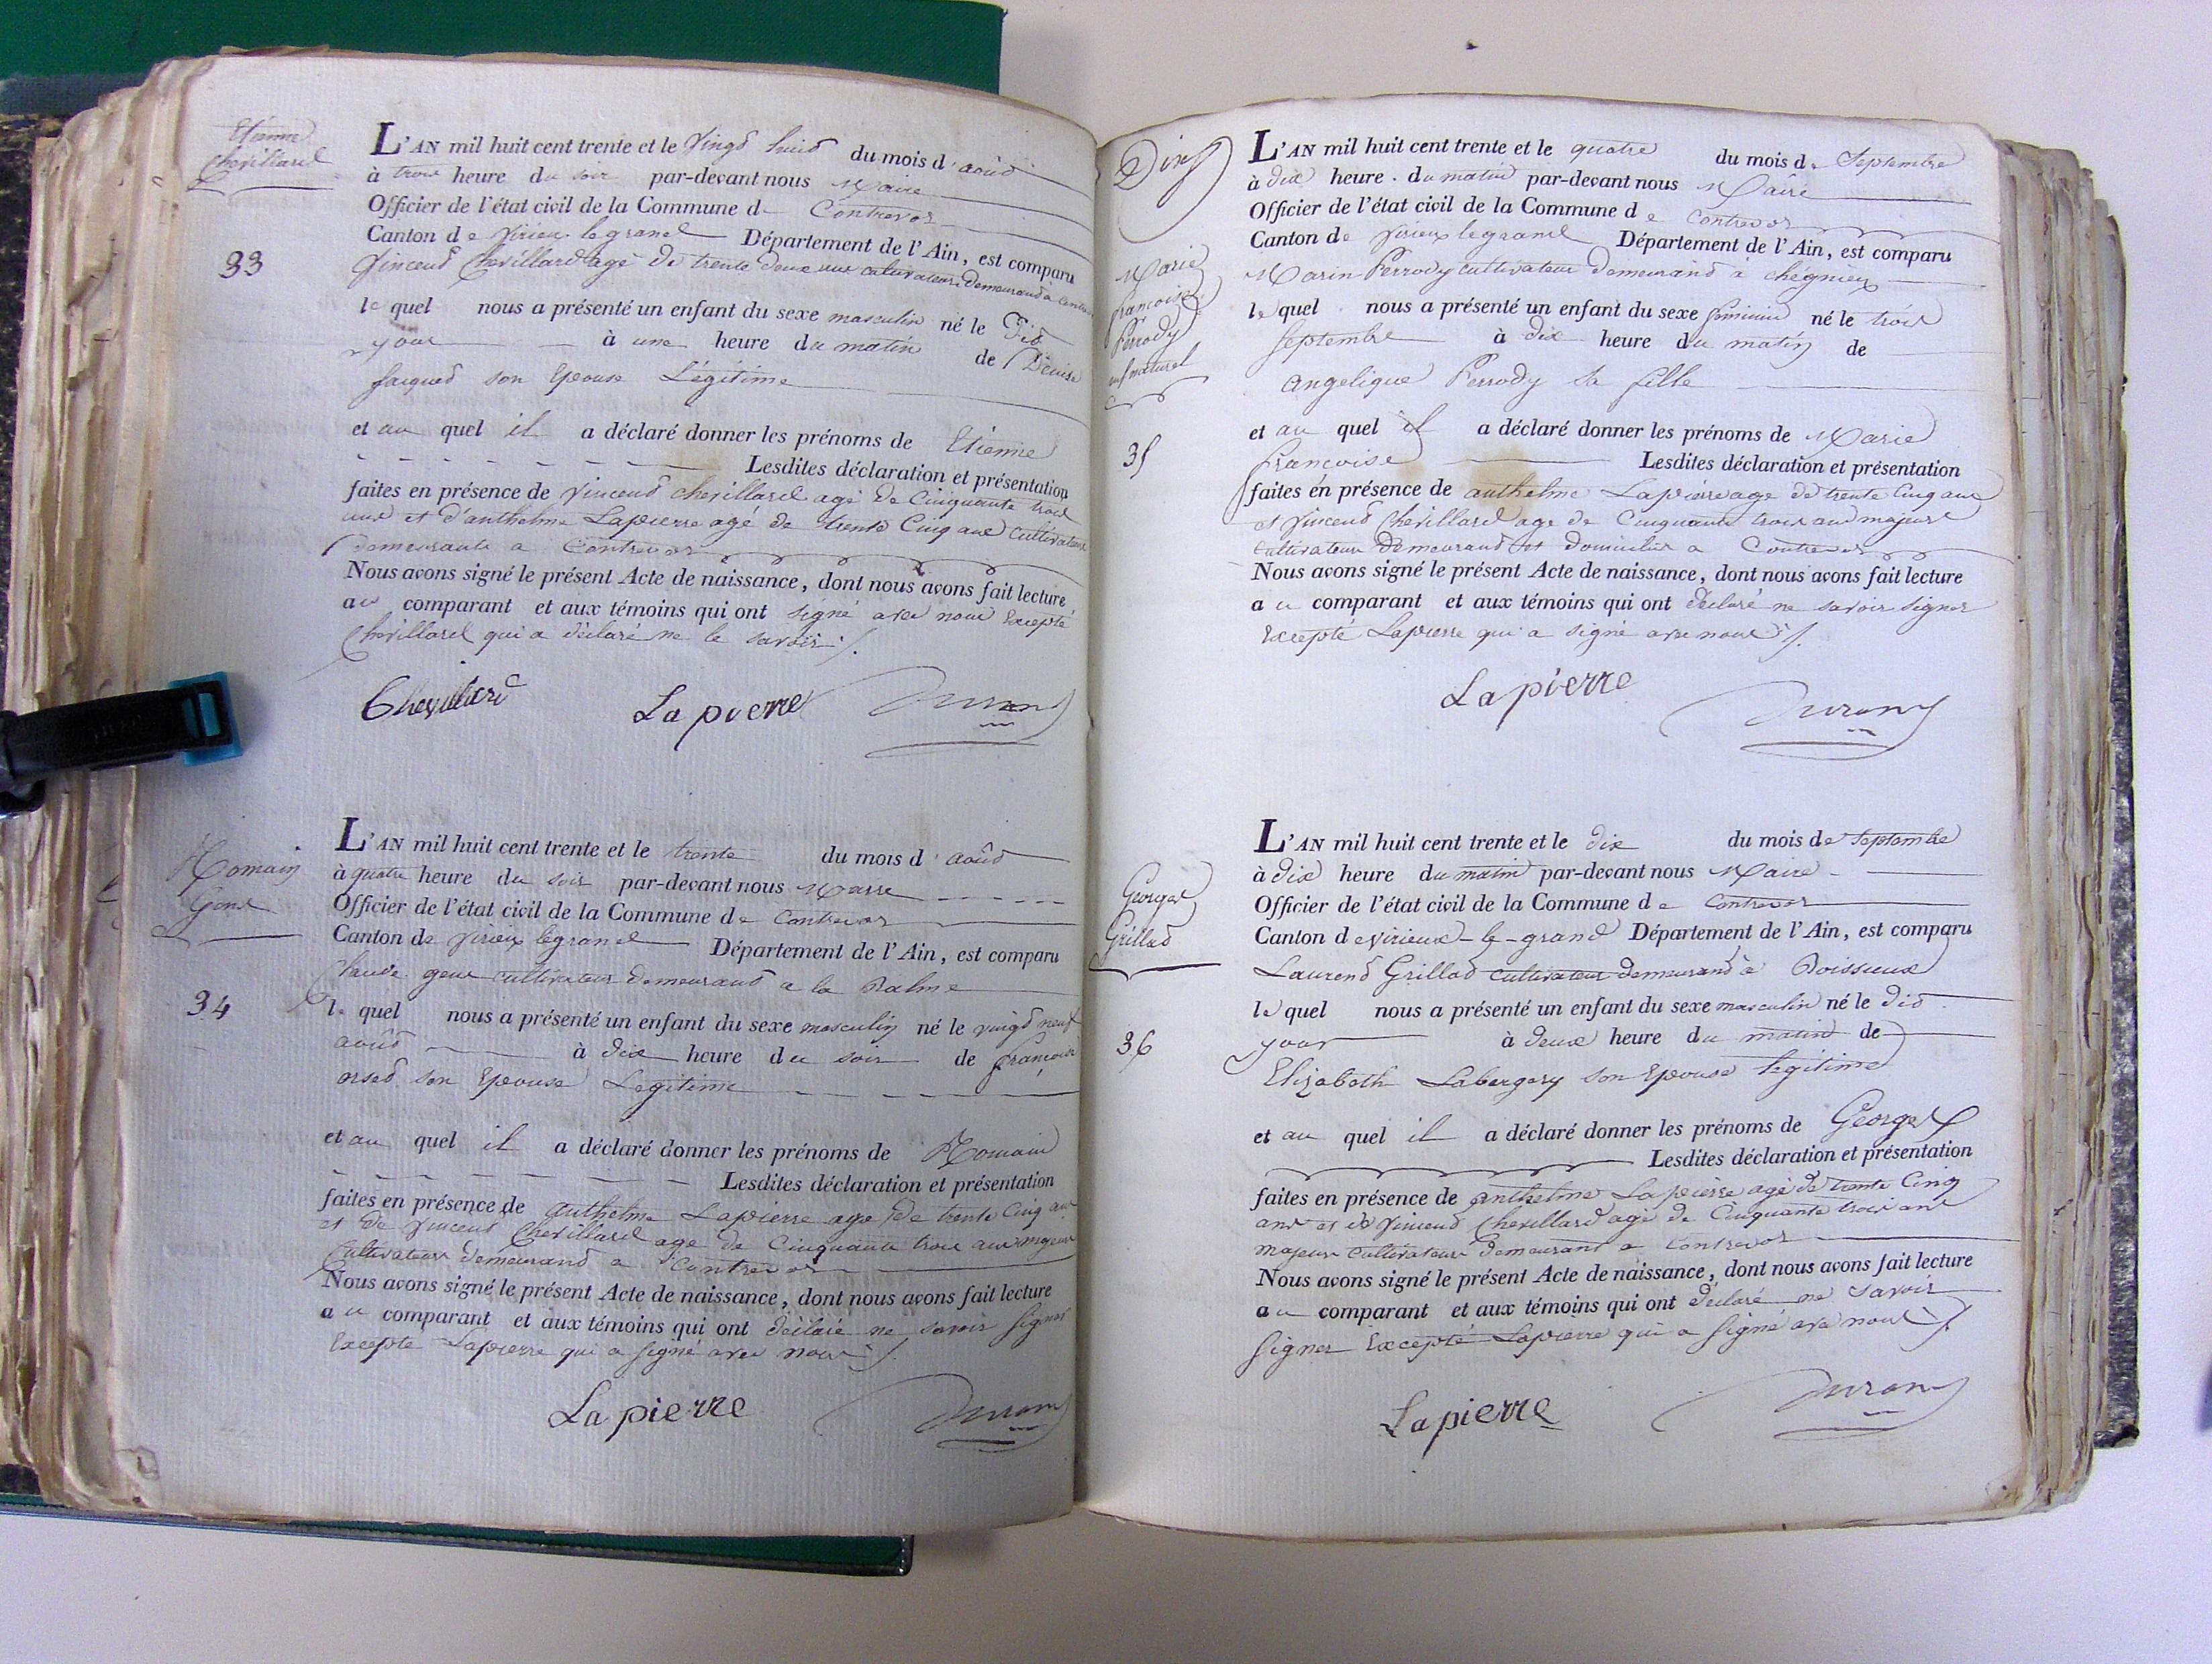 Etienne
Chevillard
33
L'AN mil huit cent trente et le Vingt huit du mois d'août
à trois heure du soir par-devant nous Maire
Officier de l'état civil de la Commune d Contrevos
Canton de Virieu legrand Département de l'Ain, est comparu
Vincend Chevillard agé de trente deux ans cultivateur demeurand à
le quel nous a présenté un enfant du sexe masculin né le Did
jour à une heure du matin de Denise
Jacqued son Epouse Légitime
et au quel il a déclaré donner les prénoms de Etienne
Lesdites déclaration et présentation
faites en présence de Vincend Chevillard agé de Cinquante trois
ans et d'anthelme Lapierre agé de trente Cinq ans Cultivateurs
demeurants a Contrevos
Nous avons signé le présent Acte de naissance, dont nous avons fait lecture
au comparant et aux témoins qui ont signé avec nous Excepté
Chevillard qui a déclaré ne le savoir ./.
Chevillard Lapierre Durand
Romain
Gent
34
L'AN mil huit cent trente et le trente du mois d'août
à quatre heure du soir par-devant nous Maire
Officier de l'état civil de la Commune de Contrevos
Canton de Virieu legrand Département de l'Ain, est comparu
Claude cultivateur demeurand a la Balme
le quel nous a présenté un enfant du sexe masculin né le vingd neuf
août à dix heure du soir de françoise
orsed son Epouse Legitime
et au quel il a déclaré donner les prénoms de Romain
Lesdites déclaration et présentation
faites en présence de Anthelme Lapierre agé de trente Cinq ans
et de Vincend Chevillard agé de Cinquante trois ans majeurs
Cultivateurs demeurand a Contrevos
Nous avons signé le présent Acte de naissance, dont nous avons fait lecture
au comparant et aux témoins qui ont déclaré ne savoir signer
Excepté Lapierre qui a signé avec nous ./.
Lapierre Durand
Marie
françoise
Perrody
enf naturel
35
L'AN mil huit cent trente et le quatre du mois de Septembre
à dix heure du matin par-devant nous Maire
Officier de l'état civil de la Commune de Contrevos
Canton de Virieux legrand Département de l'Ain, est comparu
Marin Perrody cultivateur demeurand à chégnieux
le quel nous a présenté un enfant du sexe féminin né le trois
Septembre à dix heure du matin de
Angelique Perrody sa fille
et au quel il a déclaré donner les prénoms de Marie
françoise Lesdites déclaration et présentation
faites en présence de anthelme Lapierre agé de trente Cinq ans
et Vincend Chevillard agé de Cinquante trois ans majeurs
cultivateurs demeurand et domiciliés a Contrevos
Nous avons signé le présent Acte de naissance, dont nous avons fait lecture
au comparant et aux témoins qui ont déclaré ne savoir signer
Excepté Lapierre qui a signé avec nous ./.
Lapierre
Durand
Georges
Grillod
36
L'AN mil huit cent trente et le dix du mois de Septembre
à dix heure du matin par-devant nous Maire
Officier de l'état civil de la Commune de Contrevos
Canton de virieux-le-grand Département de l'Ain, est comparu
Laurend Grillod cultivateur demeurand à Boissieux
le quel nous a présenté un enfant du sexe masculin né le did
jour à deux heure du matin de
Elizabeth Labergery son Epouse légitime
et au quel il a déclaré donner les prénoms de Georges
Lesdites déclaration et présentation
faites en présence de anthelme Lapierre agé de trente Cinq
ans et de Vincend Chevillard agé de Cinquante trois ans
majeurs cultivateurs demeurant a Contrevos
Nous avons signé le présent Acte de naissance, dont nous avons fait lecture
au comparant et aux témoins qui ont déclaré ne savoir
signer Excepté Lapierre qui a signé avec nous ./.
Lapierre Durand